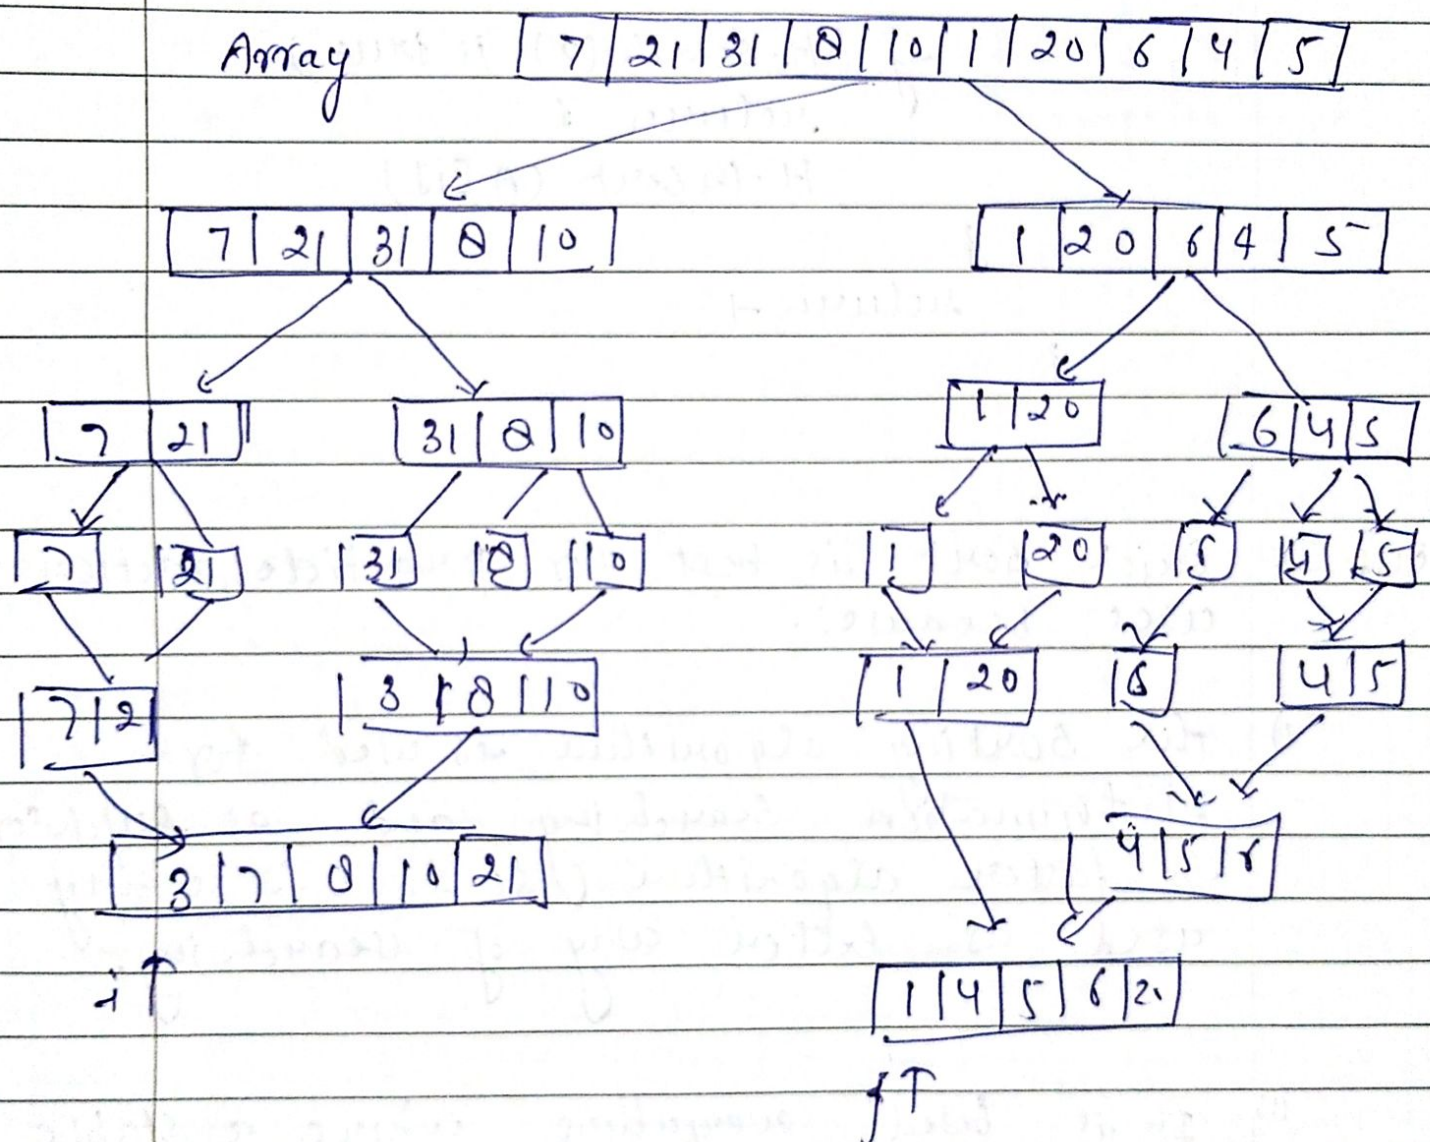 Array 7 21 31 8 10 1 20 6 4 5
7 21 31 8 10 1 20 6 4 5
7 21 31 8 10 1 20 6 4 5
7 21 31 8 10 1 20 6 4 5
7 21 3 8 10 1 20 6 4 5
3 7 8 10 21 4 5 6
i ↑ 1 4 5 6 2
j ↑